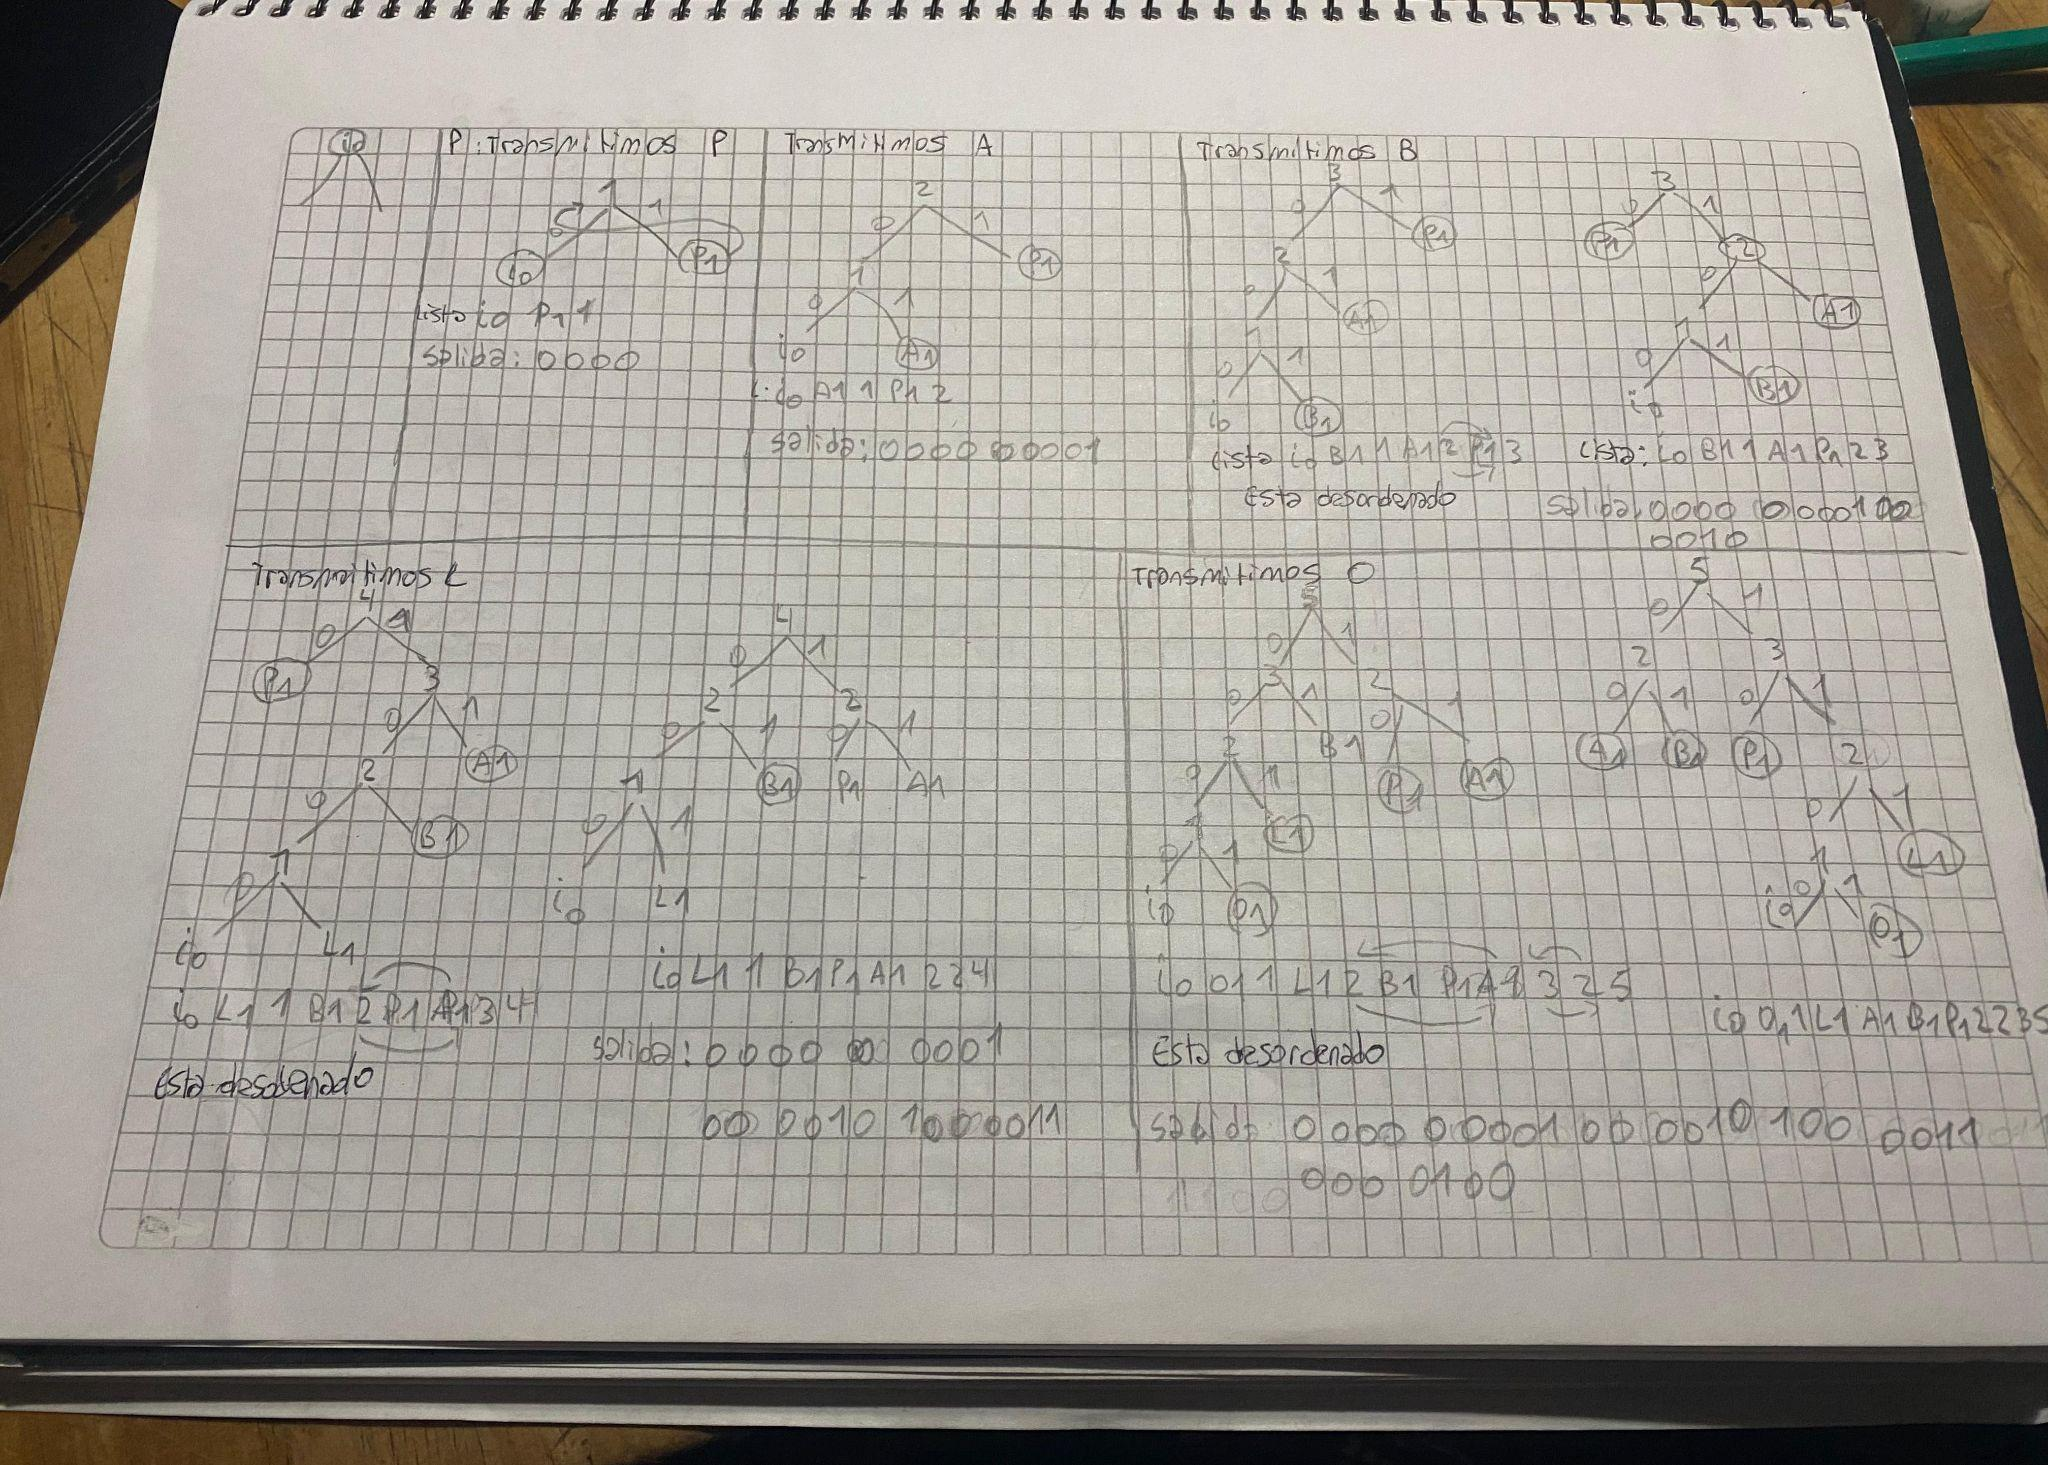 i0
P: Transmitimos P
1
0 1
i0 P1
Lista i0 P1 1
salida: 0000
Transmitimos A
2
0 1
1 P1
0 1
i0 A1
L: i0 A1 1 P1 2
salida: 0000 00001
Transmitimos B
3
0 1
2 P1
0 1
1 A1
0 1
i0 B1
Lista i0 B1 1 A1 2 P1 3
Esta desordenado
3
0 1
P1 2
0 A1
1
0 1
i0 B1
Lista: i0 B1 1 A1 P1 2 3
salida: 0000 0000100
0010
Transmitimos L
4
0 1
P1 3
0 1
2 A1
0 B1
1
0
i0 L1
i0 L1 1 B1 2 P1 A1 3 4
Esta desordenado
4
0 1
2 2
0 1 0 1
1 B1 P1 A1
0 1
i0 L1
i0 L1 1 B1 P1 A1 2 2 4
salida: 0000 0001
00 0010 1000011
Transmitimos O
5
0 1
3 2
0 1 0 1
2 B1 P1 A1
0 1
1 L1
0 1
i0 O1
i0 O1 1 L1 2 B1 P1 A1 3 2 5
Esta desordenado
5
0 1
2 3
0 1 0 1
A1 B1 P1 2
0 1
1 L1
0 1
i0 O1
i0 O1 1 L1 A1 B1 P1 2 2 3 5
salida 0000 00001 00 0010 100 0011
000 0100